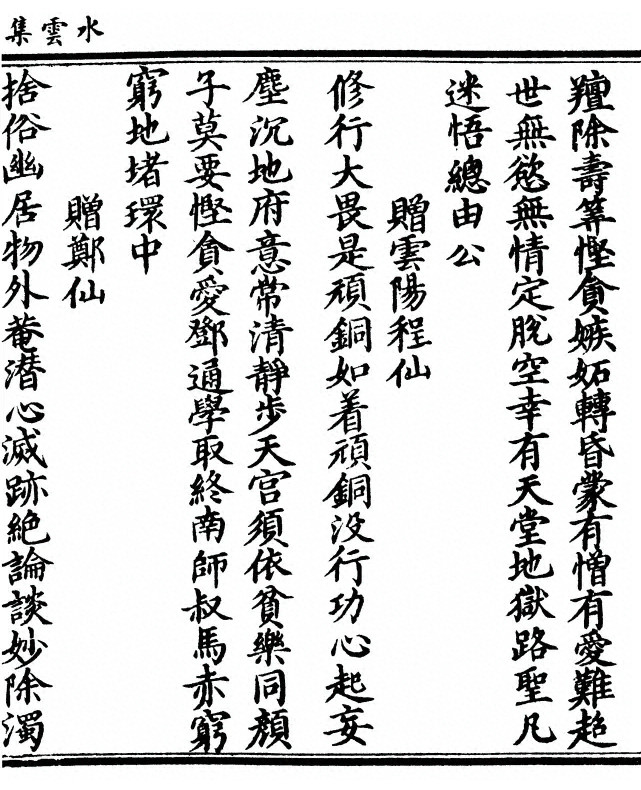 水雲集
羶除壽筭慳貪嫉妬轉昏蒙有憎有愛難超
世無慾無情定脫空幸有天堂地獄路聖凡
迷悟總由公
贈雲陽程仙
修行大畏是頑銅如着頑銅没行功心起妄
塵沉地府意常清靜步天宮須依貧樂同顏
子莫要慳貪愛鄧通學取終南師叔馬赤窮
窮地堵環中
贈鄭仙
捨俗幽居物外菴潜心滅跡絕論談妙除濁